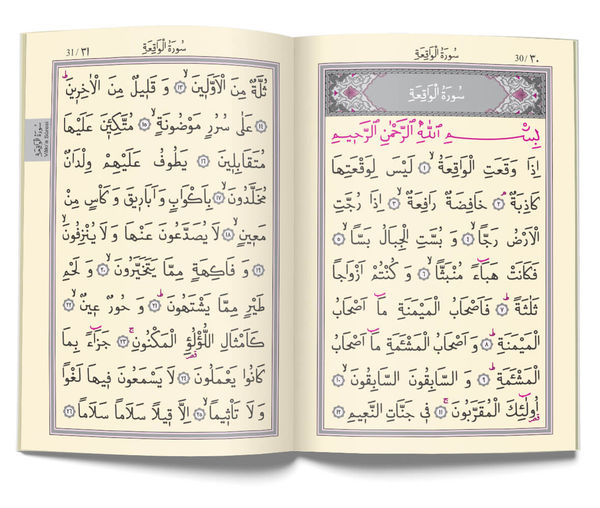 سُورَةُ الْوَاقِعَةِ 30/٣٠
سُورَةُ الْوَاقِعَةِ
بِسْمِ اللّٰهِ الرَّحْمٰنِ الرَّحٖيمِ
اِذَا وَقَعَتِ الْوَاقِعَةُۙ ﴿١﴾ لَيْسَ لِوَقْعَتِهَا
كَاذِبَةٌۢ ﴿٢﴾ خَافِضَةٌ رَافِعَةٌۙ ﴿٣﴾ اِذَا رُجَّتِ
الْاَرْضُ رَجًّاۙ ﴿٤﴾ وَ بُسَّتِ الْجِبَالُ بَسًّاۙ ﴿٥﴾
فَكَانَتْ هَبَٓاءً مُنْبَثًّاۙ ﴿٦﴾ وَ كُنْتُمْ اَزْوَاجًا
ثَلٰثَةًؕ ﴿٧﴾ فَاَصْحَابُ الْمَيْمَنَةِ مَٓا اَصْحَابُ
الْمَيْمَنَةِؕ ﴿٨﴾ وَ اَصْحَابُ الْمَشْـَٔمَةِ مَٓا اَصْحَابُ
الْمَشْـَٔمَةِؕ ﴿٩﴾ وَ السَّابِقُونَ السَّابِقُونَۙ ﴿١٠﴾
اُو۬لٰٓئِكَ الْمُقَرَّبُونَۚ ﴿١١﴾ فٖى جَنَّاتِ النَّعٖيمِ ﴿١٢﴾
31/٣١ سُورَةُ الْوَاقِعَةِ
ثُلَّةٌ مِنَ الْاَوَّلٖينَۙ ﴿١٣﴾ وَ قَلٖيلٌ مِنَ الْاٰخِرٖينَؕ
﴿١٤﴾ عَلٰى سُرُرٍ مَوْضُونَةٍۙ ﴿١٥﴾ مُتَّكِـٖٔينَ عَلَيْهَا
مُتَقَابِلٖينَ ﴿١٦﴾ يَطُوفُ عَلَيْهِمْ وِلْدَانٌ
مُخَلَّدُونَۙ ﴿١٧﴾ بِاَكْوَابٍ وَ اَبَارٖيقَ وَ كَاْسٍ مِنْ
مَعٖينٍۙ ﴿١٨﴾ لَا يُصَدَّعُونَ عَنْهَا وَ لَا يُنْزِفُونَۙ
﴿١٩﴾ وَ فَاكِهَةٍ مِمَّا يَتَخَيَّرُونَۙ ﴿٢٠﴾ وَ لَحْمِ
طَيْرٍ مِمَّا يَشْتَهُونَؕ ﴿٢١﴾ وَ حُورٌ عٖينٌۙ ﴿٢٢﴾
كَاَمْثَالِ اللُّؤْلُؤِ الْمَكْنُونِۚ ﴿٢٣﴾ جَزَٓاءً بِمَا
كَانُوا يَعْمَلُونَ ﴿٢٤﴾ لَا يَسْمَعُونَ فٖيهَا لَغْوًا
وَ لَا تَاْثٖيمًاۙ ﴿٢٥﴾ اِلَّا قٖيلًا سَلَامًا سَلَامًا ﴿٢٦﴾
سُورَةُ الْوَاقِعَةِ
Vâkı'a Sûresi